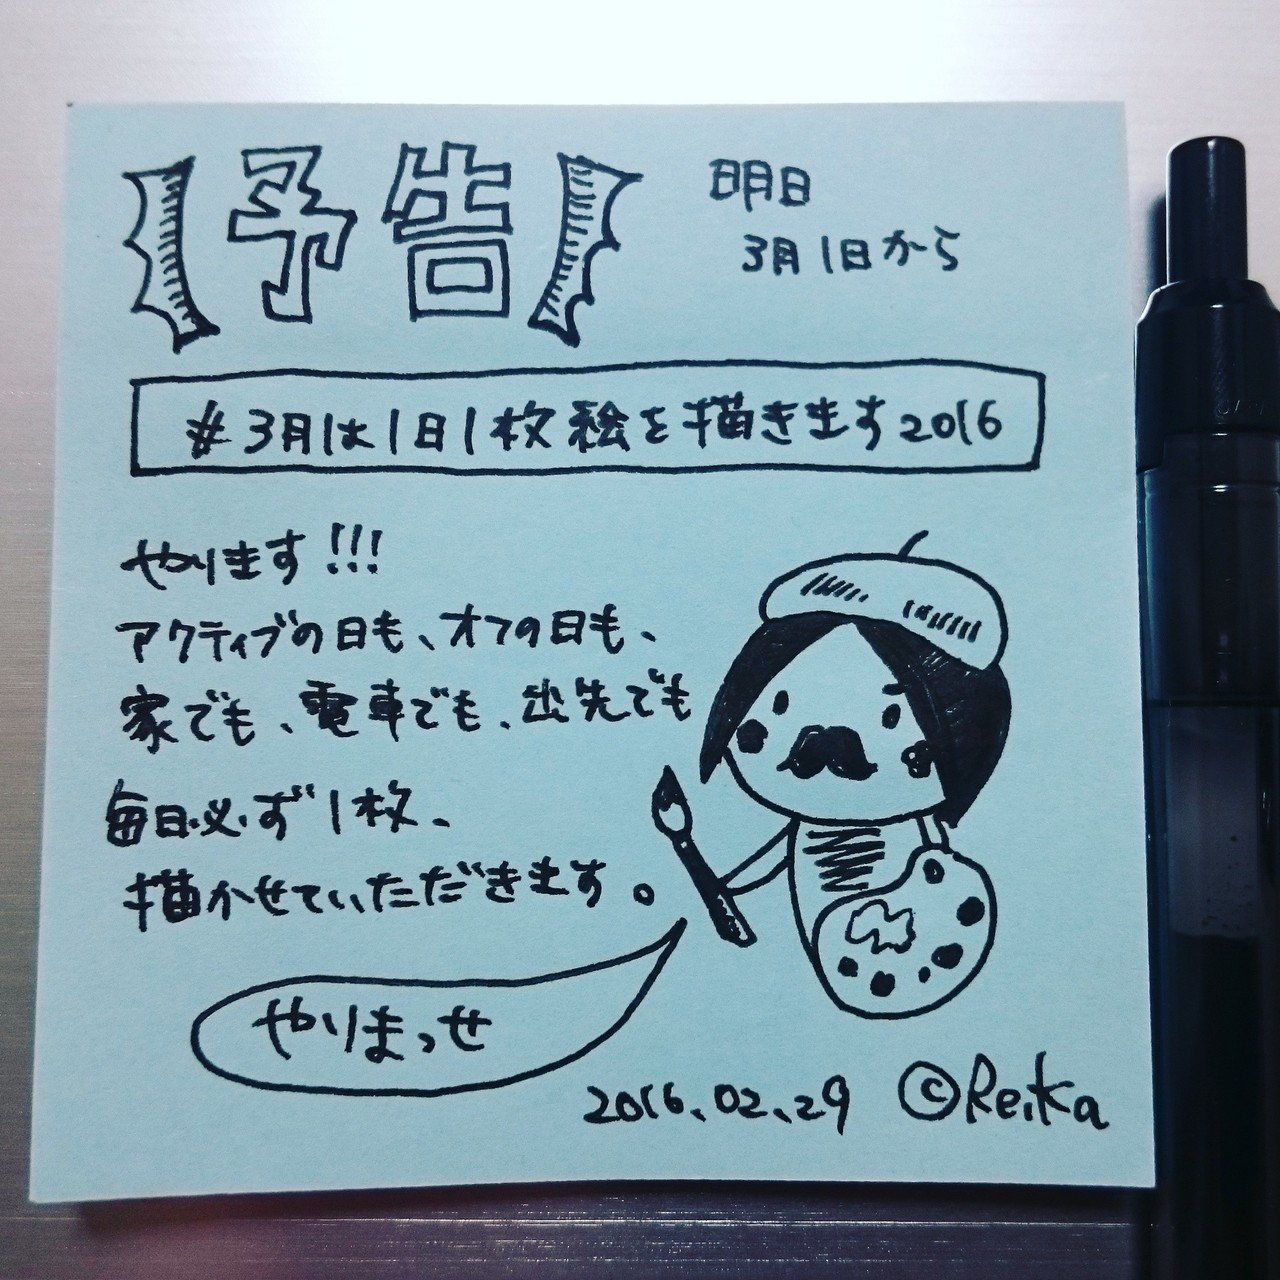 【予告】
明日
3月1日から
#3月は1日1枚絵を描きます2016
やります!!!
アクティブの日も、オフの日も、
家でも、電車でも、出先でも
毎日必ず1枚、
描かせていただきます。
やりまっせ
2016.02.29 ©Reika